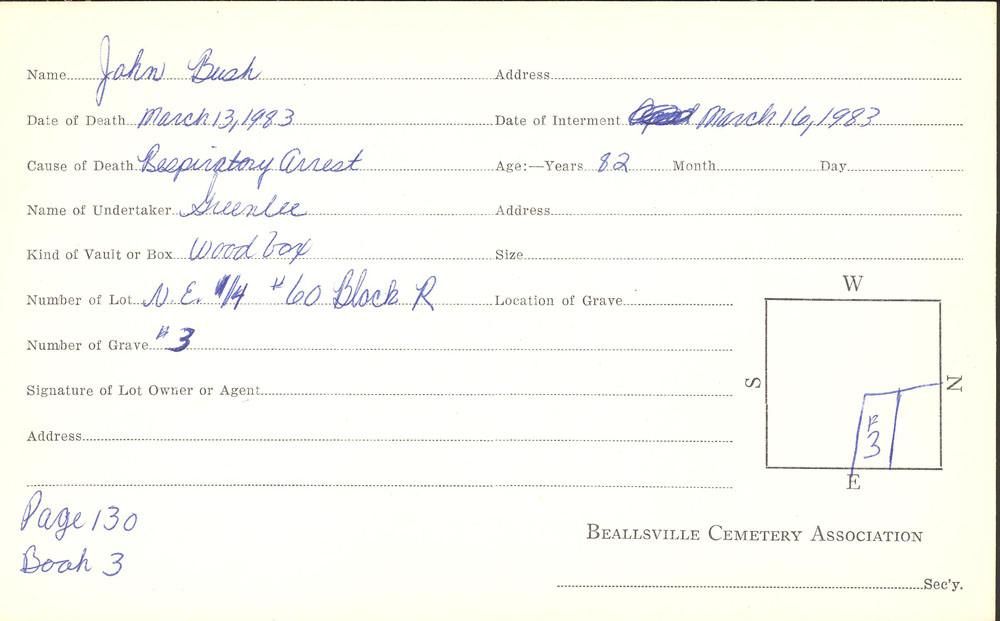 Name John Bush Address
Date of Death March 13, 1983 Date of Interment March 16, 1983
Cause of Death Respiratory Arrest Age:—Years 82 Month Day
Name of Undertaker Greenlee Address
Kind of Vault or Box Wood box Size
Number of Lot N.E. 1/4 #60 Block R Location of Grave
Number of Grave #3
Signature of Lot Owner or Agent
Address
W
S
N
#
3
E
Page 130
Book 3
BEALLSVILLE CEMETERY ASSOCIATION
Sec'y.